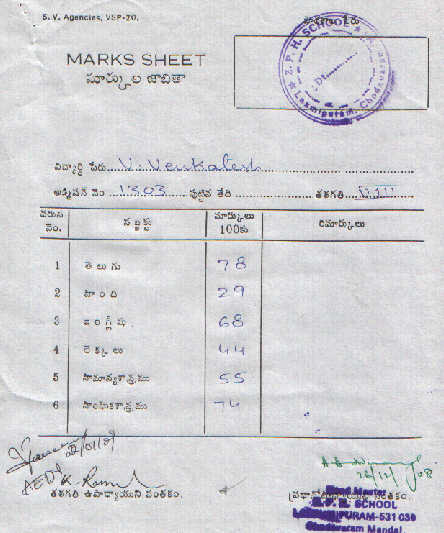 S. V. Agencies, VSP-20.
MARKS SHEET
మార్కుల జాబితా
Z. P. H. SCHOOL
Laxmipuram, Chodavaram
విద్యార్థి పేరు V. Venkatesh
అడ్మిషన్ నెం 1303 పుట్టిన తేది తరగతి VIII
వరుస నెం. సబ్జక్టు మార్కులు 100కు రిమార్కులు
1 తెలుగు 78
2 హింది 29
3 ఇంగ్లీషు 68
4 లెక్కలు 44
5 సామాన్యశాస్త్రము 55
6 సాంఘికశాస్త్రము 74
తరగతి ఉపాధ్యాయుని సంతకం. ప్రధానోపాధ్యాయుని సంతకం.
Head Master
Z. P. H. SCHOOL
PURAM-531 036
Chodavaram Mandal.